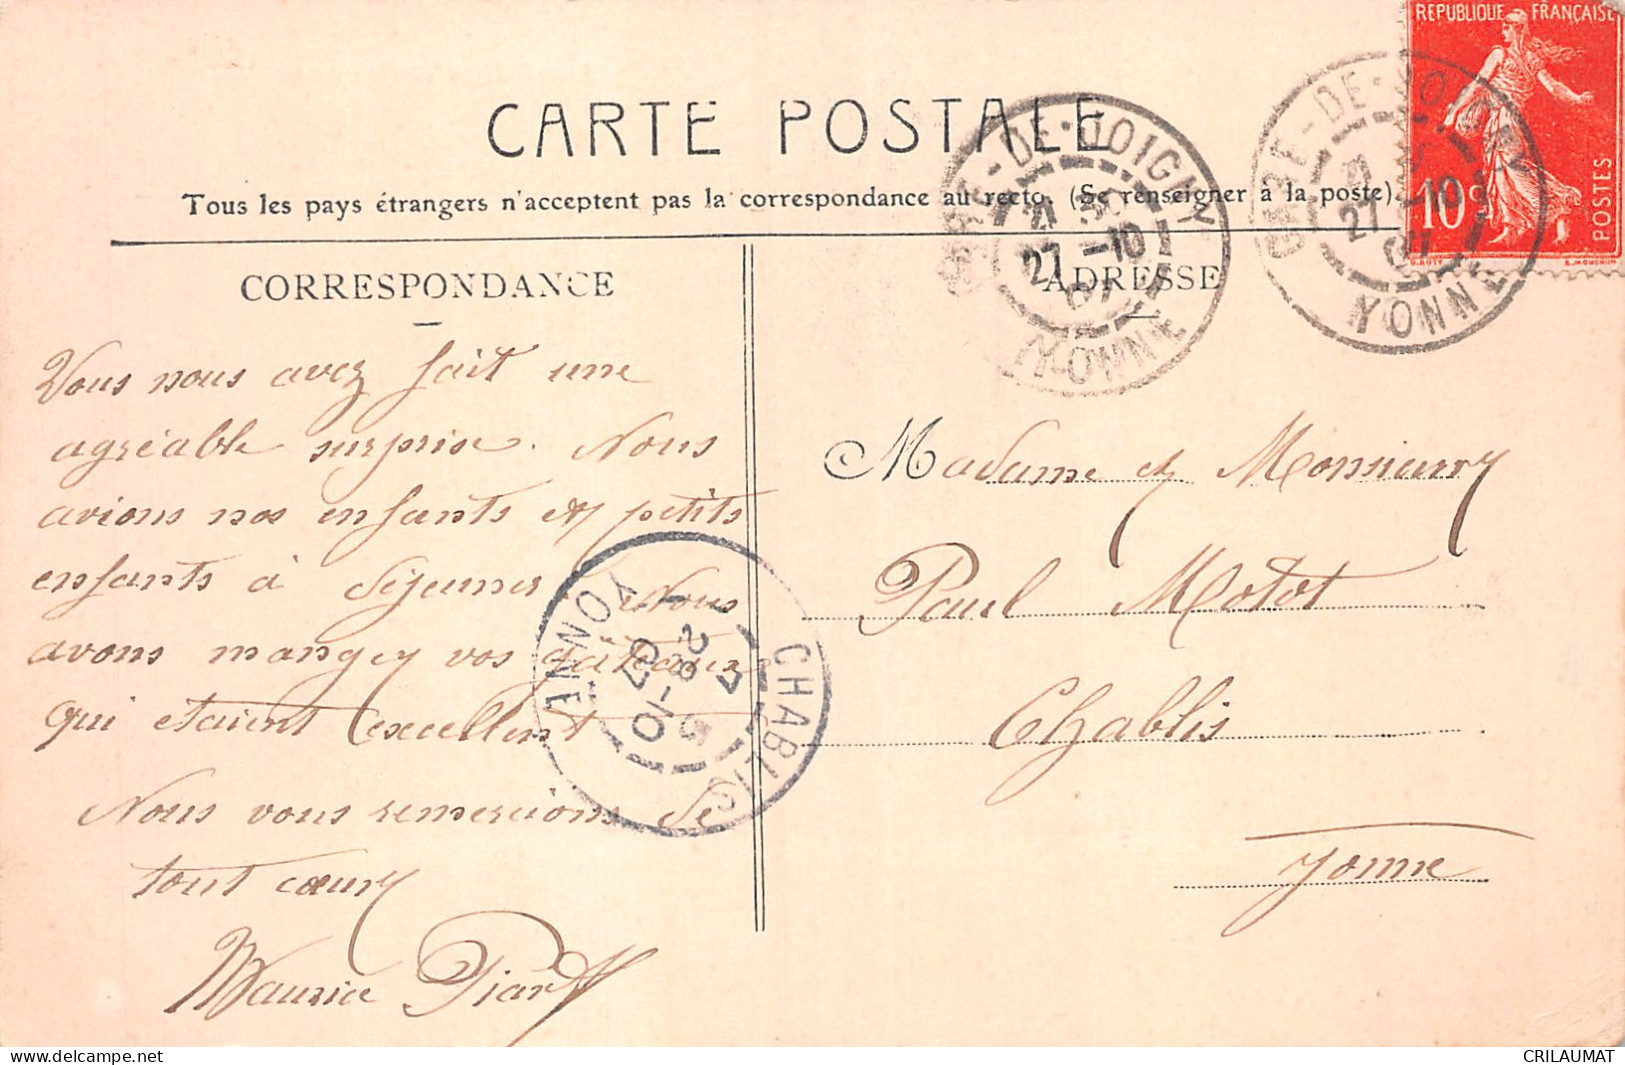 RÉPUBLIQUE FRANÇAISE
10c
POSTES
CARTE POSTALE
GARE-DE-JOIGNY
27 -10
07
YONNE
GARE-DE-JOIGNY
27 -10
07
YONNE
Tous les pays étrangers n'acceptent pas la correspondance au recto. (Se renseigner à la poste)
CORRESPONDANCE
ADRESSE
Vous nous avez fait une
agréable surprise. Nous
avions nos enfants et petits
enfants à déjeuner Nous
avons mangez vos gâteaux
qui etaient excellent
Nous vous remercions de
tout cœur
Maurice Piart
CHABLIS
28 -10
07
YONNE
Madame et Monsieur
Paul Motot
Chablis
Yonne
www.delcampe.net
CRILAUMAT